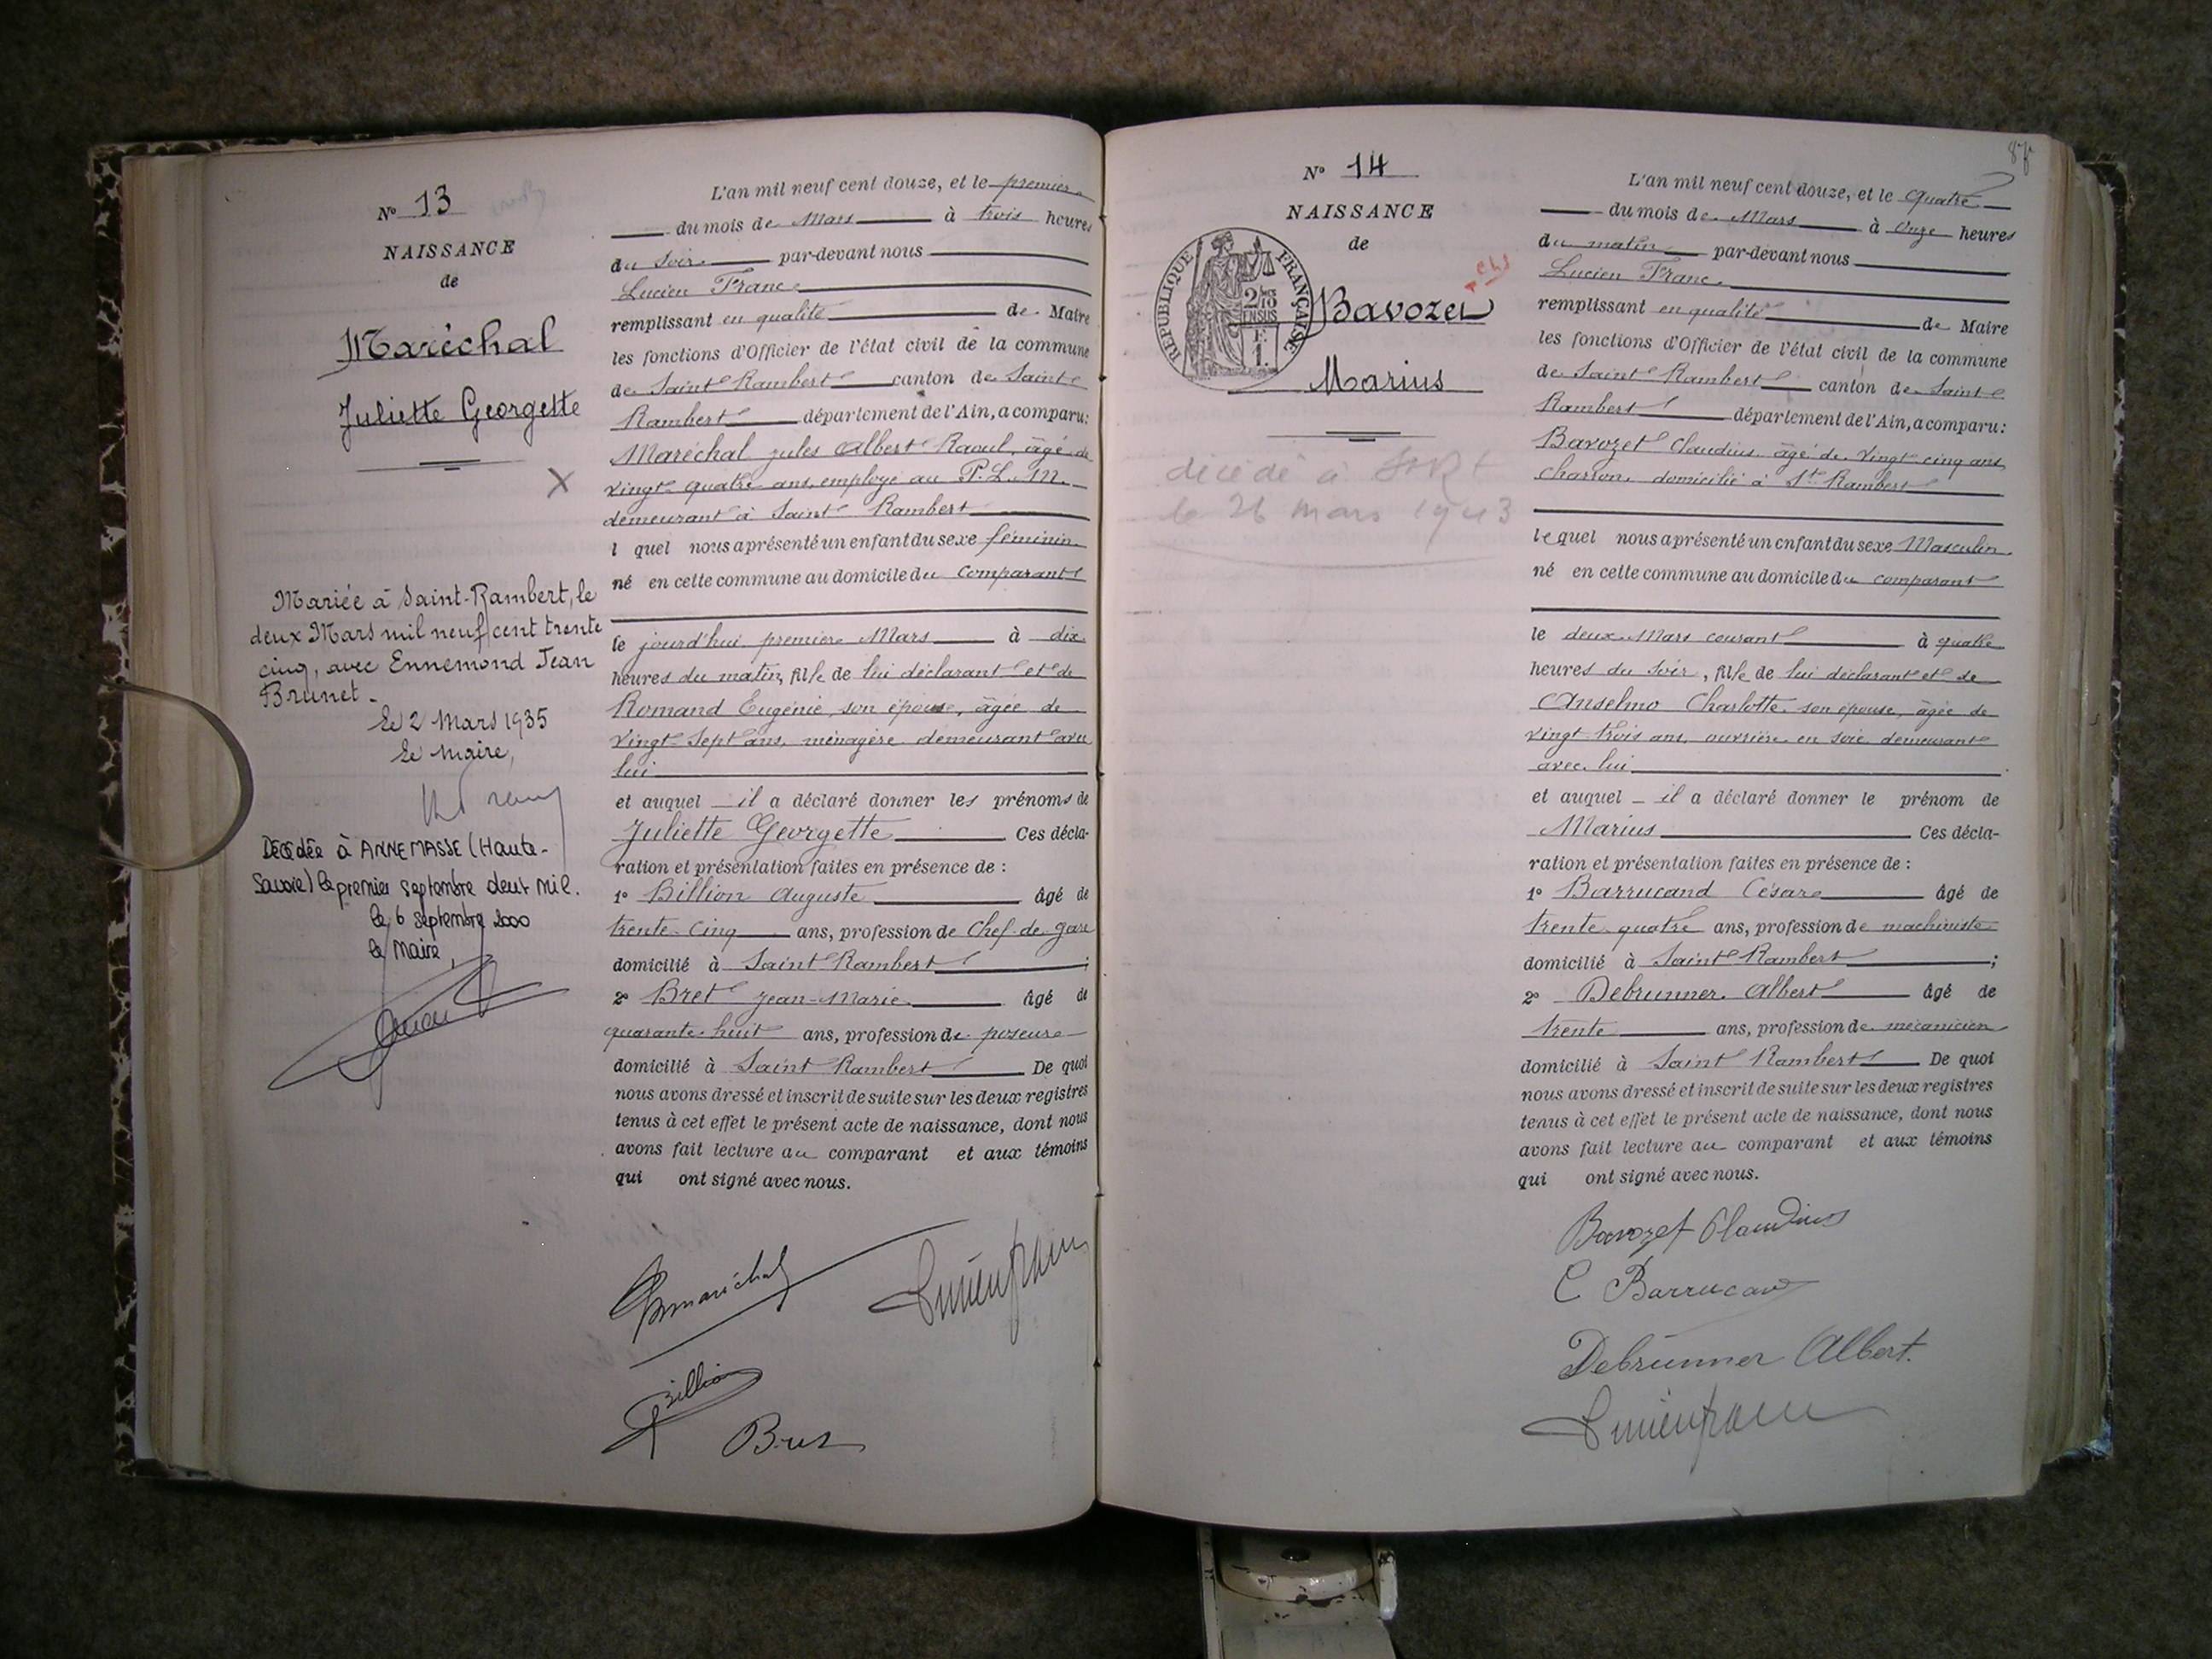 N° 13
NAISSANCE
de
Maréchal
Juliette Georgette
X
Mariée à Saint-Rambert, le
deux Mars mil neuf cent trente
cinq, avec Ennemond Jean
Brunet.
Le 2 Mars 1935
Le Maire,
Décédée à ANNEMASSE (Haute-
Savoie) le premier septembre deux mil.
le 6 septembre 2000
le Maire,
L'an mil neuf cent douze, et le premier
du mois de Mars à trois heures
du soir par-devant nous
Lucien Franc
remplissant en qualité de Maire
les fonctions d'Officier de l'état civil de la commune
de Saint Rambert canton de Saint
Rambert département de l'Ain, a comparu:
Maréchal Jules Albert Raoul, âgé de
vingt-quatre ans, employé au P.L.M.
demeurant à Saint Rambert
l quel nous a présenté un enfant du sexe féminin
né en cette commune au domicile du comparant
le jourd'hui premier Mars à dix
heures du matin, fille de lui déclarant et de
Romand Eugénie, son épouse, âgée de
vingt-sept ans, ménagère demeurant avec
lui
et auquel il a déclaré donner les prénoms de
Juliette Georgette Ces décla-
ration et présentation faites en présence de :
1° Billion Auguste âgé de
trente-cinq ans, profession de Chef de gare
domicilié à Saint Rambert ;
2° Bret Jean-Marie âgé de
quarante-huit ans, profession de poseur
domicilié à Saint Rambert De quoi
nous avons dressé et inscrit de suite sur les deux registres
tenus à cet effet le présent acte de naissance, dont nous
avons fait lecture au comparant et aux témoins
qui ont signé avec nous.
Maréchal
Lucien Franc
Billion
Bret
N° 14
NAISSANCE
de
RÉPUBLIQUE FRANÇAISE
2/10 EN SUS
1 F.
Bavozet
Marius
décédé à StRt
le 26 mars 1943
L'an mil neuf cent douze, et le quatre
du mois de Mars à onze heures
du matin par-devant nous
Lucien Franc
remplissant en qualité de Maire
les fonctions d'Officier de l'état civil de la commune
de Saint Rambert canton de Saint
Rambert département de l'Ain, a comparu:
Bavozet Claudius âgé de vingt-cinq ans
charron, domicilié à St Rambert
le quel nous a présenté un enfant du sexe Masculin
né en cette commune au domicile du comparant
le deux Mars courant à quatre
heures du soir, fils de lui déclarant et de
Anselmo Charlotte, son épouse, âgée de
vingt-trois ans, ouvrière en soie demeurant
avec lui
et auquel il a déclaré donner le prénom de
Marius Ces décla-
ration et présentation faites en présence de :
1° Barrucand César âgé de
trente-quatre ans, profession de machiniste
domicilié à Saint Rambert ;
2° Debrunner Albert âgé de
trente ans, profession de mécanicien
domicilié à Saint Rambert De quoi
nous avons dressé et inscrit de suite sur les deux registres
tenus à cet effet le présent acte de naissance, dont nous
avons fait lecture au comparant et aux témoins
qui ont signé avec nous.
Bavozet Claudius
C Barrucand
Debrunner Albert.
Lucien Franc